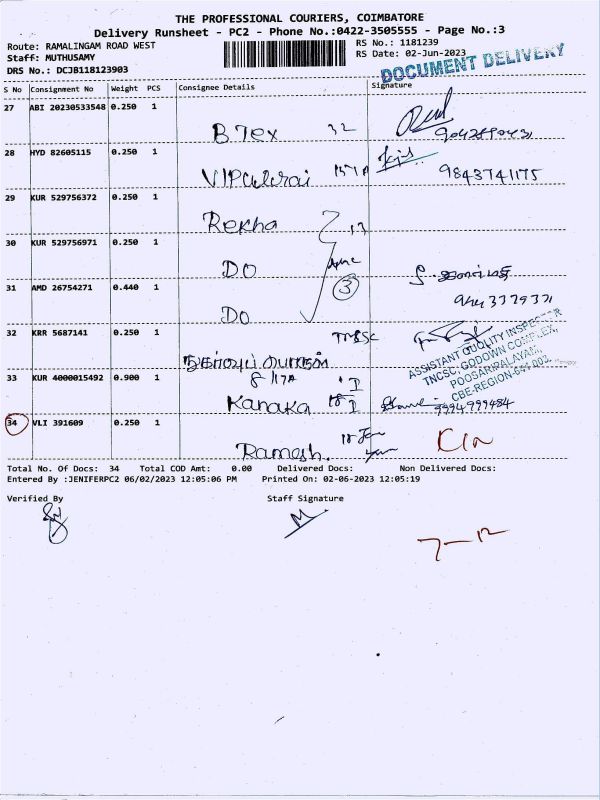 THE PROFESSIONAL COURIERS, COIMBATORE
Delivery Runsheet - PC2 - Phone No.:0422-3505555 - Page No.:3
Route: RAMALINGAM ROAD WEST
RS No.: 1181239
Staff: MUTHUSAMY
RS Date: 02-Jun-2023
DRS No.: DCJB118123903
DOCUMENT DELIVERY
S No Consignment No Weight PCS Consignee Details Signature
27 ABI 20230533548 0.250 1
B Tex 32
28 HYD 82605115 0.250 1
9843741175
29 KUR 529756372 0.250 1
Rekha
30 KUR 529756971 0.250 1
DO
3
31 AMD 26754271 0.440 1
DO
32 KRR 5687141 0.250 1
ASSISTANT QUALITY INSPECTOR
TNCSC, GODOWN COMPLEX,
POOSARIPALAYAM,
CBE-REGION-641 003.
33 KUR 4000015492 0.900 1
Kanaka
9994999484
34 VLI 391609 0.250 1
Ramesh.
Total No. Of Docs: 34 Total COD Amt: 0.00 Delivered Docs: Non Delivered Docs:
Entered By :JENIFERPC2 06/02/2023 12:05:06 PM Printed On: 02-06-2023 12:05:19
Verified By Staff Signature
7-12